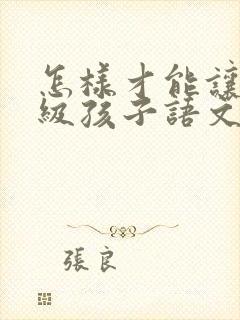 怎樣才能讓
級孩子語文
張良